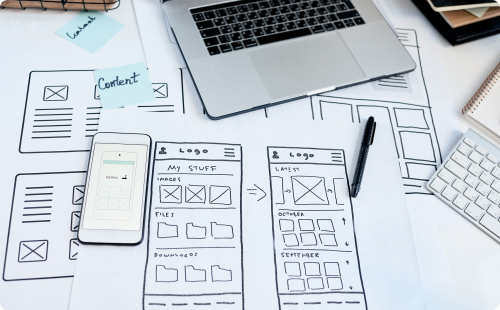 Content
Content
LOGO
MY STUFF
IMAGES
FILES
DOWNLOADS
LOGO
LATEST
OCTOBER
SEPTEMBER